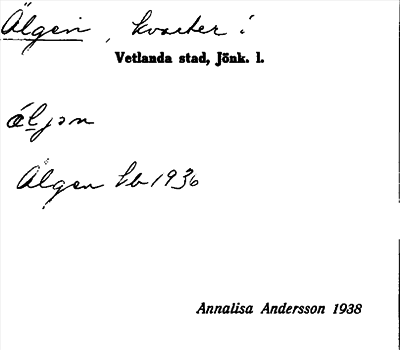 Älgen, kvarter i
Vetlanda stad, Jönk. l.
äljən
Älgen kb 1936
Annalisa Andersson 1938